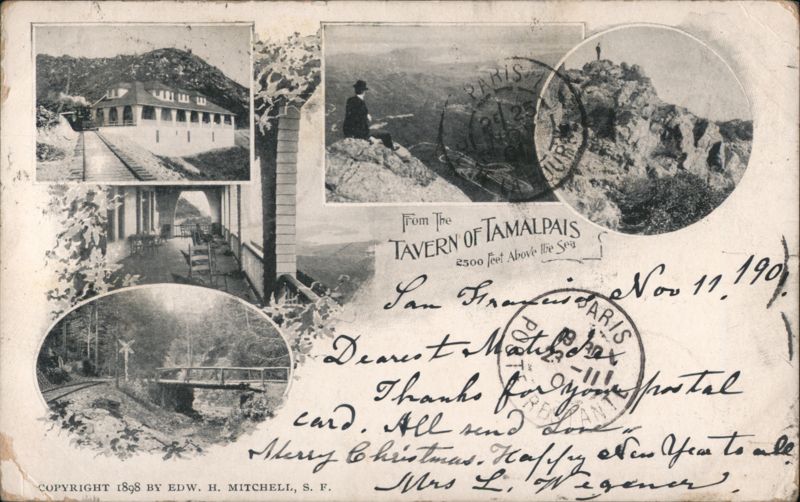 From The
TAVERN OF TAMALPAIS
2500 Feet Above the Sea
San Francisco Nov 11, 190
PARIS
25
PARIS
POSTE RESTANTE
Dearest Matilda
Thanks for your postal
card. All send Love
Merry Christmas. Happy New Year to all
Mrs L. Wegener
COPYRIGHT 1898 BY EDW. H. MITCHELL, S. F.